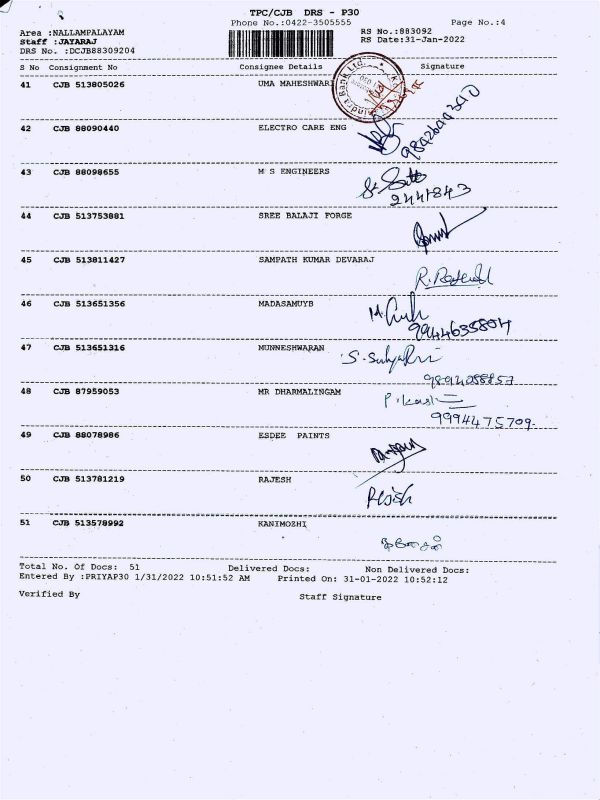 TPC/CJB DRS - P30
Phone No.:0422-3505555
Page No.:4
Area :NALLAMPALAYAM
RS No.:883092
Staff :JAYARAJ
RS Date:31-Jan-2022
DRS No. :DCJB88309204
S No Consignment No Consignee Details Signature
41 CJB 513805026 UMA MAHESHWARI
42 CJB 88090440 ELECTRO CARE ENG
43 CJB 88098655 M S ENGINEERS
2441843
44 CJB 513753881 SREE BALAJI FORGE
45 CJB 513811427 SAMPATH KUMAR DEVARAJ
46 CJB 513651356 MADASAMUYB
9944635804
47 CJB 513651316 MUNNESHWARAN
48 CJB 87959053 MR DHARMALINGAM
9994475709.
49 CJB 88078986 ESDEE PAINTS
50 CJB 513781219 RAJESH
51 CJB 513578992 KANIMOZHI
Total No. Of Docs: 51 Delivered Docs: Non Delivered Docs:
Entered By :PRIYAP30 1/31/2022 10:51:52 AM Printed On: 31-01-2022 10:52:12
Verified By Staff Signature